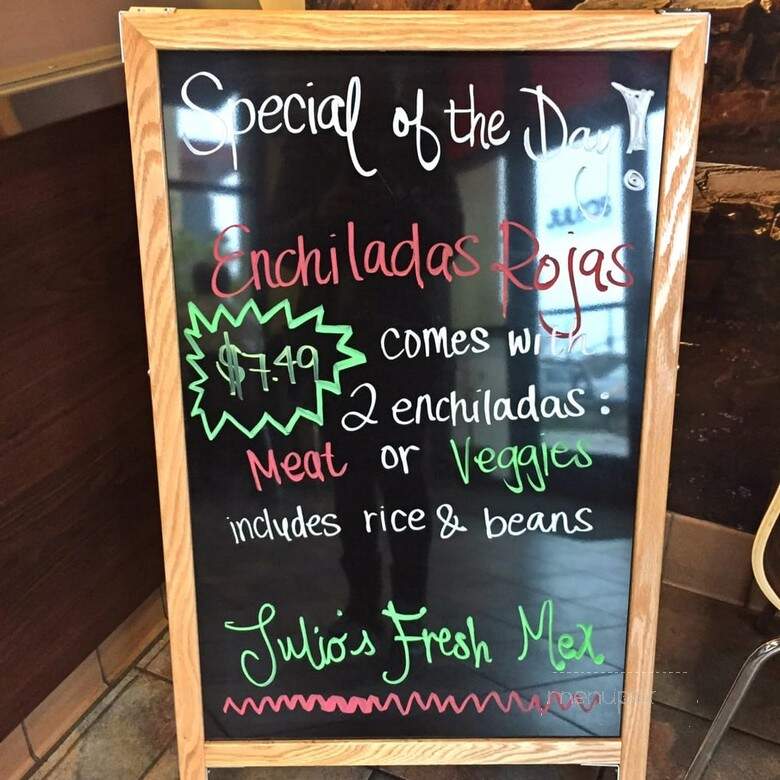 Special of the Day!
Enchiladas Rojas
$7.49
comes with
2 enchiladas:
Meat or Veggies
includes rice & beans
Julio's Fresh Mex